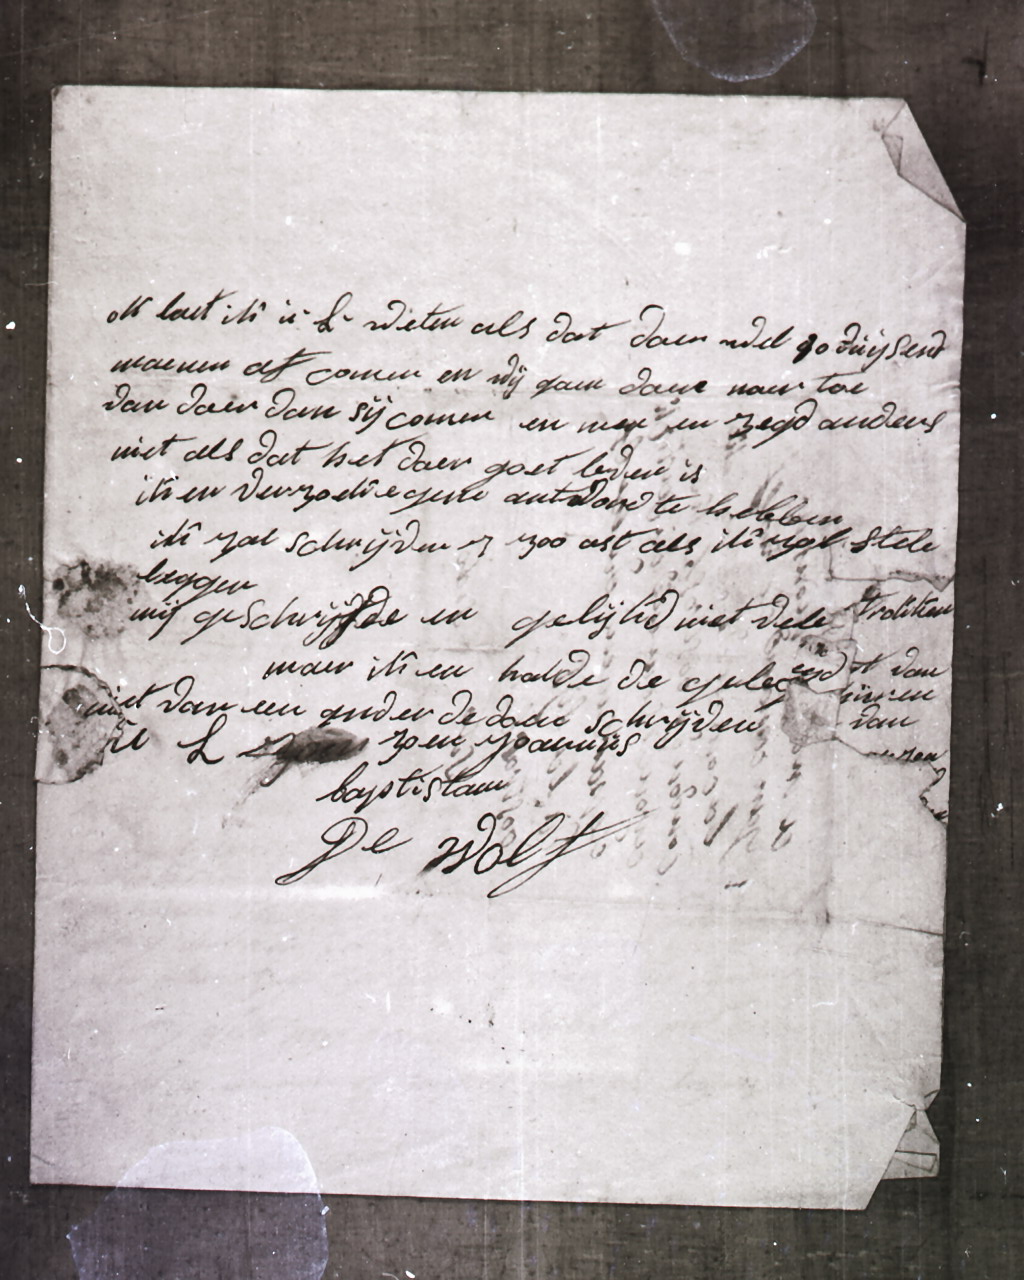 ok laet ik u L weten als dat daer wel 90 duijsent
maenen af comen en wij gaen daer naer toe
van daer dan sij comen en men en zegd anders
niet als dat het daer goet leven is
ik en verzoek egene antword te hebben
ik zal schrijven zoo ast als ik zal stele
leggen
mij geschrijfde en gelijkd niet vele
maer ik en hadde de van
niet van een ander dedaen schrijven van
u L zoen joannis
baptistam
De wolf